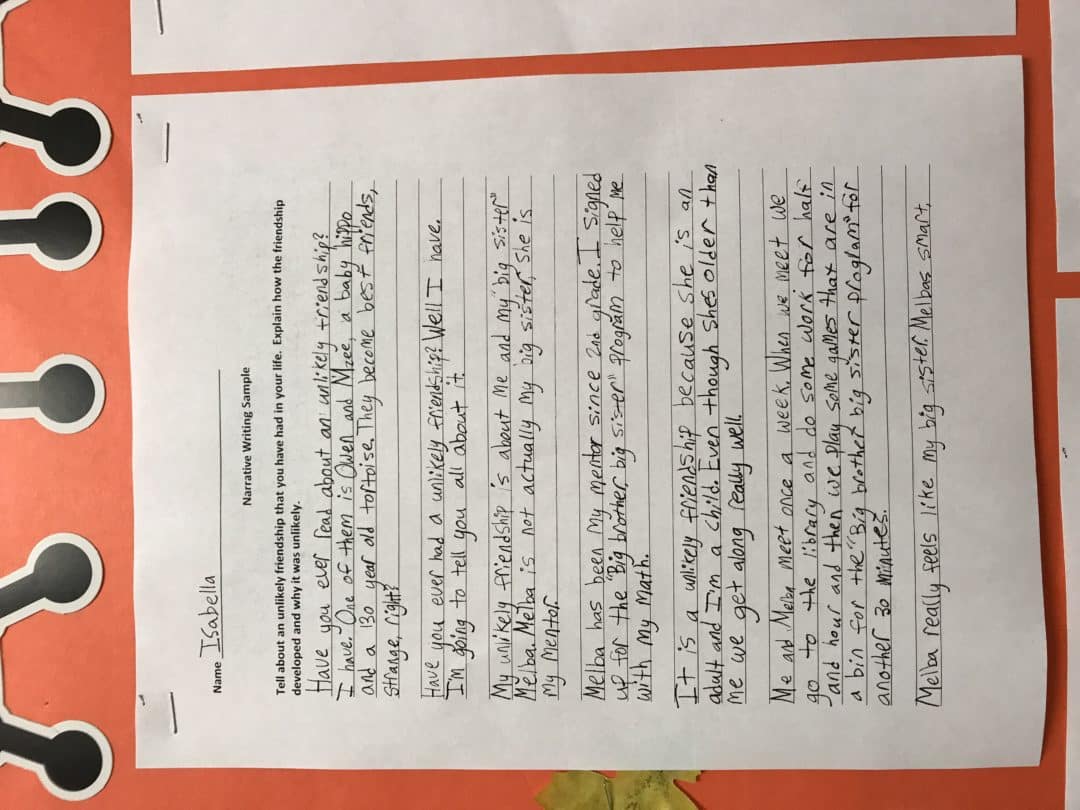 Name Isabella
Narrative Writing Sample
Tell about an unlikely friendship that you have had in your life. Explain how the friendship
developed and why it was unlikely.
Have you ever read about an unlikely friendship?
I have. One of them is Owen and Mzee, a baby hippo
and a 130 year old tortoise. They become best friends,
strange, right?
Have you ever had a unlikely friendship? Well I have.
I'm going to tell you all about it.
My unlikely friendship is about me and my "big sister"
Melba. Melba is not actually my big sister, she is
my mentor.
Melba has been my mentor since 2nd grade. I signed
up for the "Big brother big sister" program to help me
with my math.
It is a unlikely friendship because she is an
adult and I'm a child. Even though shes older than
me we get along really well.
Me and Melba meet once a week. When we meet we
go to the library and do some work for half
and hour and then we play some games that are in
a bin for the "Big brother big sister program" for
another 30 minutes.
Melba really feels like my big sister. Melbas smart,